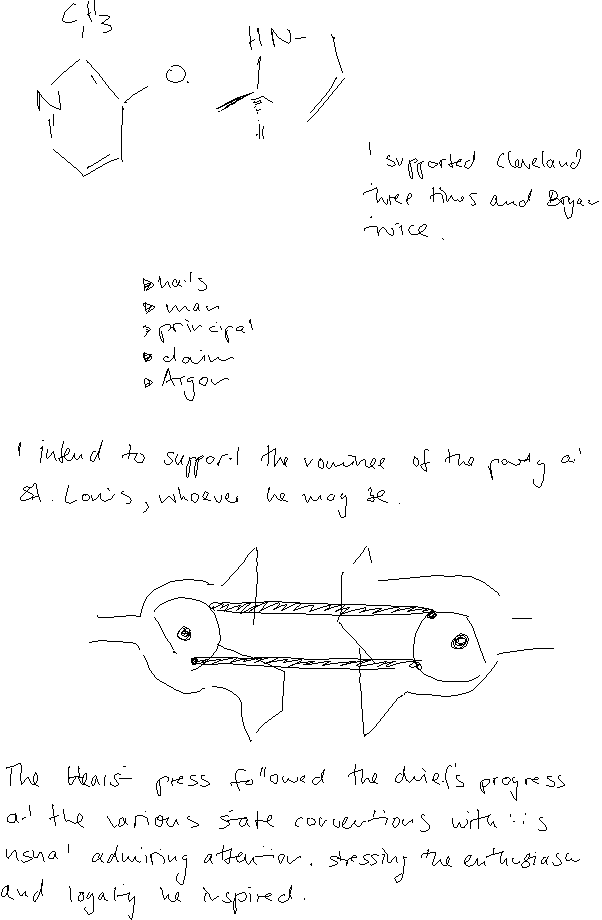 CH3
N
O
HN
I supported Cleveland
three times and Bryan
twice.
nails
man
principal
claim
Argon
I intend to support the nominee of the party at
St. Louis, whoever he may be.
The Hearst press followed the chief's progress
at the various state conventions with its
usual admiring attention. stressing the enthusiasm
and loyalty he inspired.